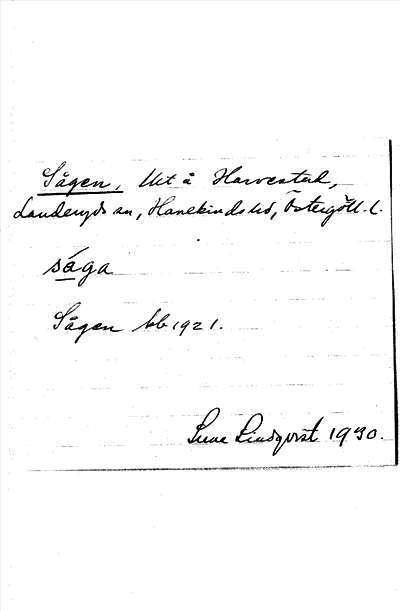 Sågen, Utt å Harvestad,
Landeryds sn, Hanekinds hd, Östergötl. l.
såga
Sågen bb 1921.
Sune Lindqvist 1930.